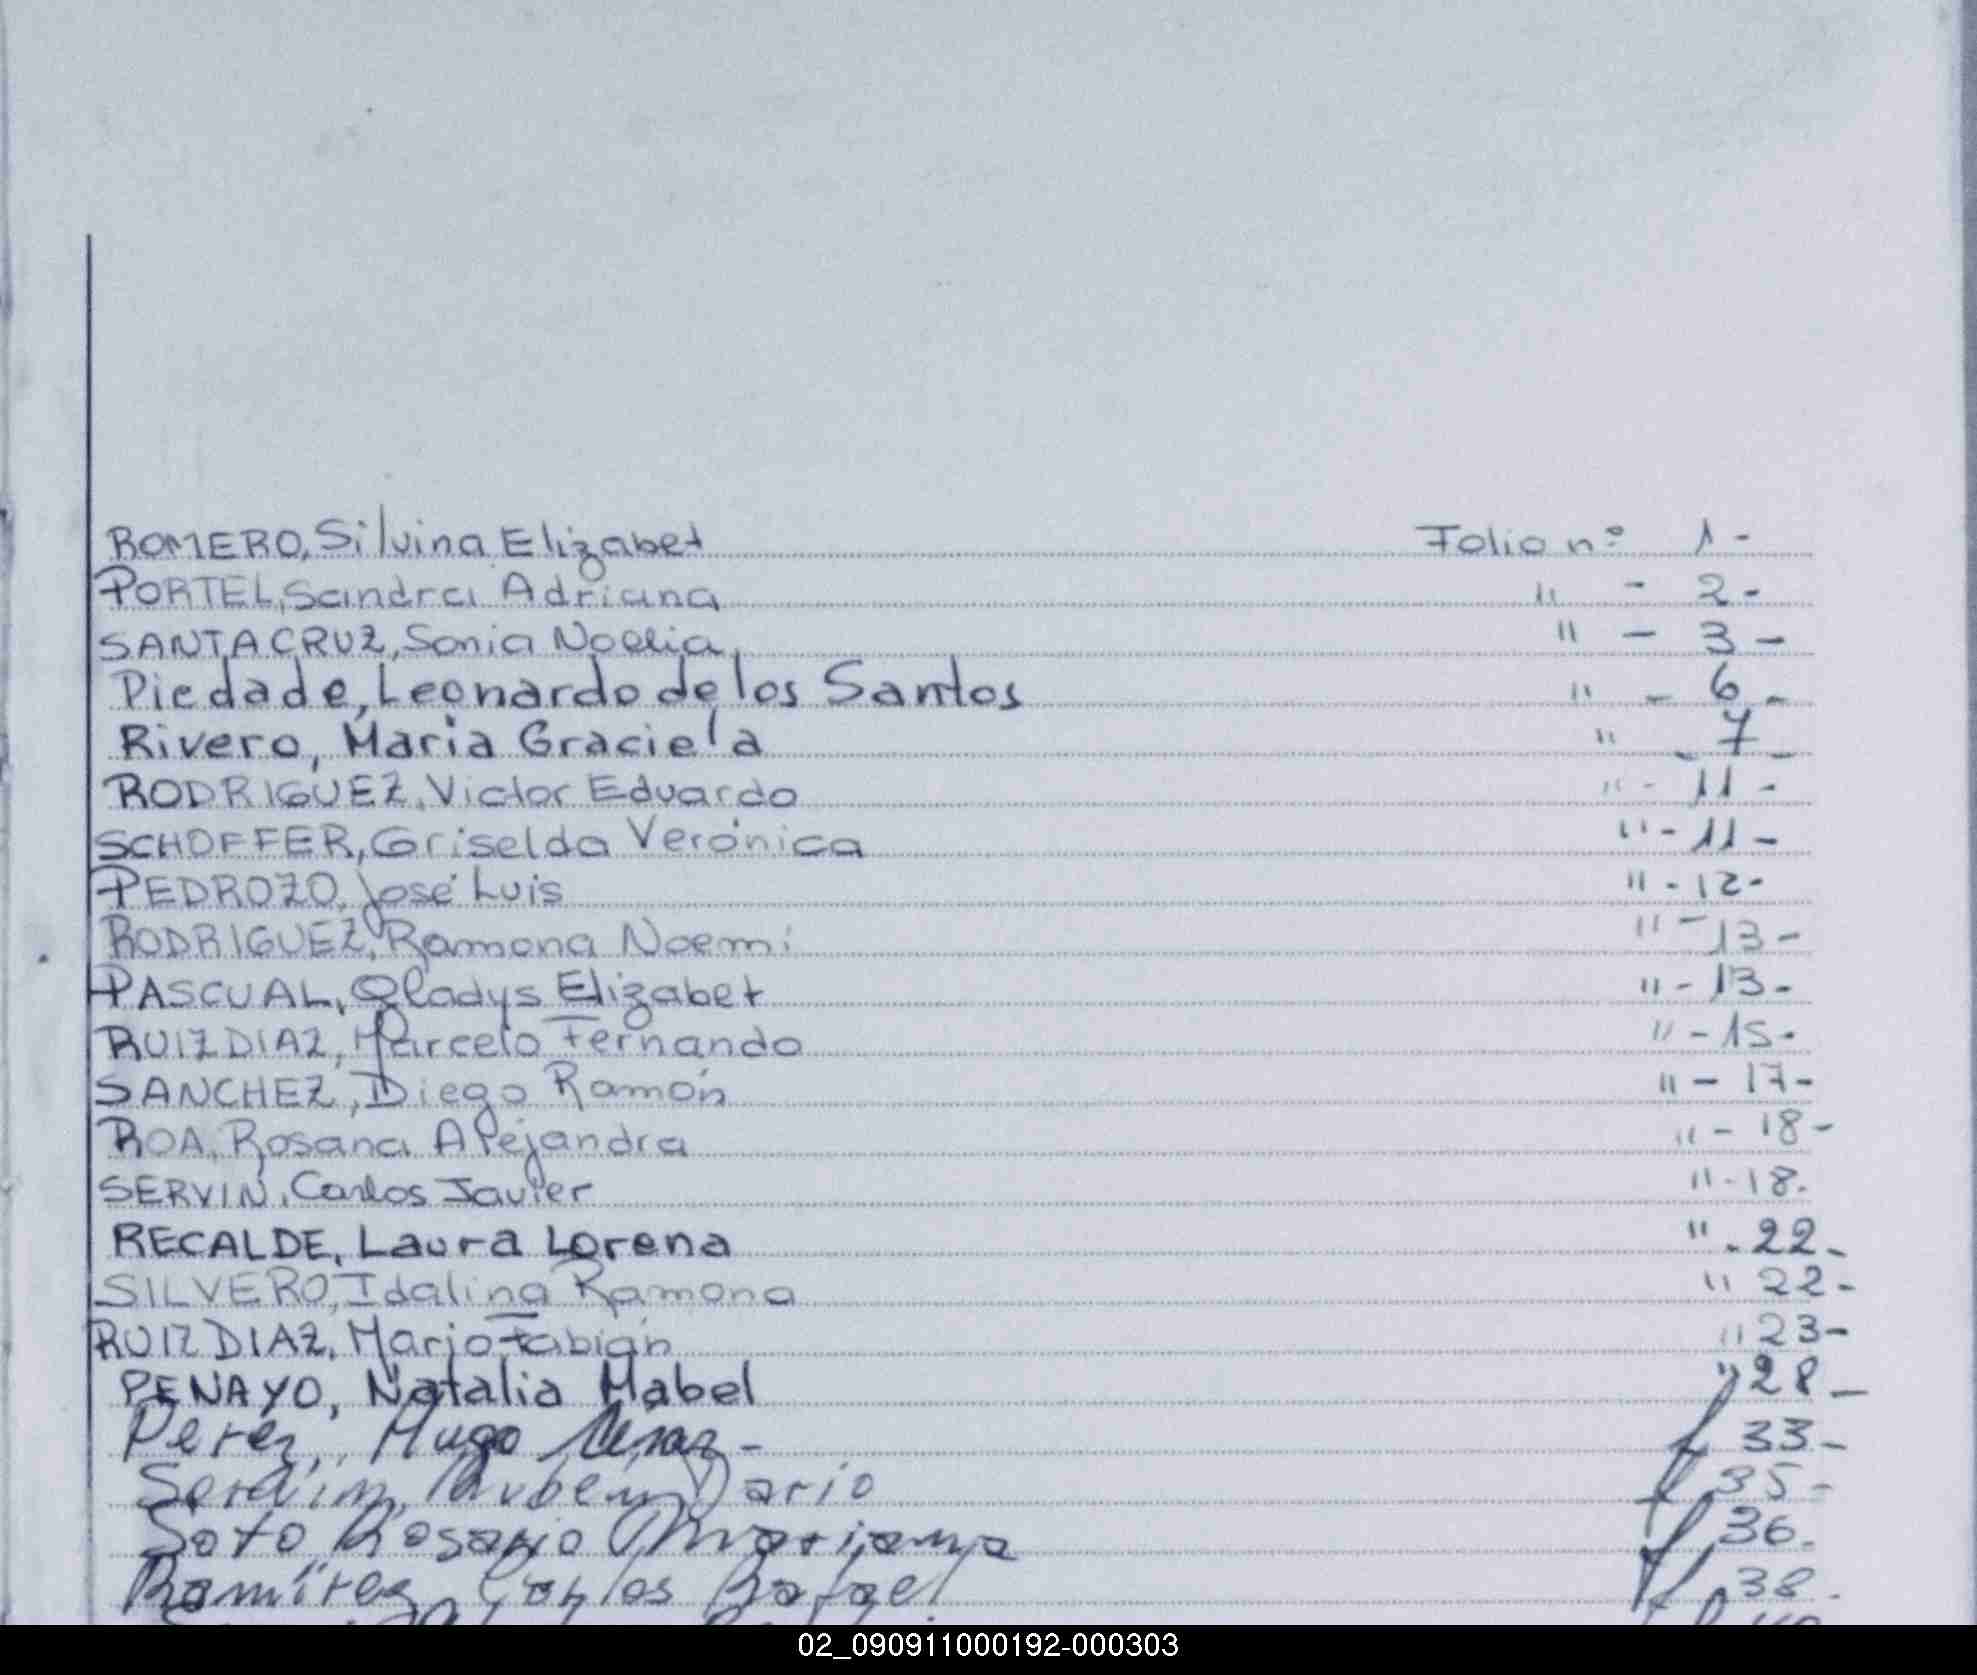 ROMERO, Silvina Elizabet Folio nº 1-
PORTEL, Sandra Adriana " - 2-
SANTACRUZ, Sonia Noelia " - 3-
Piedade, Leonardo de los Santos " - 6-
Rivero, Maria Graciela " - 7-
RODRIGUEZ, Victor Eduardo " - 11-
SCHOFFER, Griselda Verónica " - 11-
PEDROZO, José Luis " - 12-
RODRIGUEZ, Ramona Noemi " - 13-
PASCUAL, Gladys Elizabet " - 13-
RUIZ DIAZ, Marcelo Fernando " - 15-
SANCHEZ, Diego Ramón " - 17-
ROA, Rosana Alejandra " - 18-
SERVIN, Carlos Javier " - 18.
RECALDE, Laura Lorena " - 22-
SILVERO, Idalina Ramona " 22-
RUIZ DIAZ, Mario Fabián " 23-
PENAYO, Natalia Mabel " 28-
Perez, Hugo Cesar - f 33-
Ruben Dario f 35-
Soto Rosario Mariana f 36.
Ramírez Carlos Rafael f 38.
02_090911000192-000303